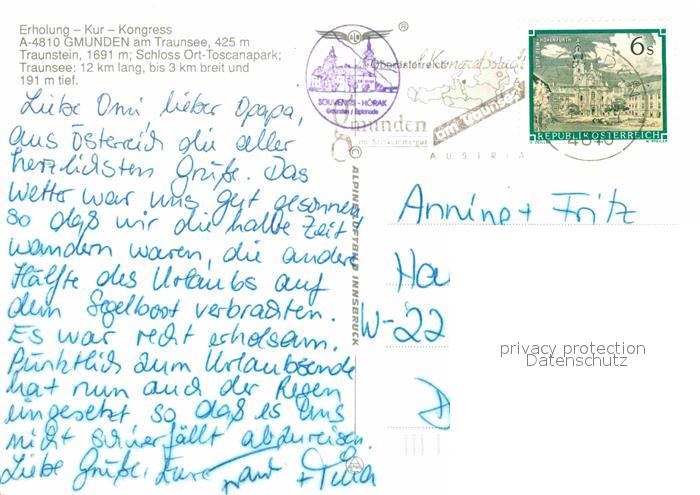 Erholung – Kur – Kongress
A-4810 GMUNDEN am Traunsee, 425 m
Traunstein, 1691 m; Schloss Ort-Toscanapark;
Traunsee: 12 km lang, bis 3 km breit und
191 m tief.
Liebe Omi, lieber Opapa,
aus Östereich die aller
herzlichsten Grüße. Das
Wetter war uns gut gesonnen,
so daß wir die halbe Zeit
wandern waren, die andere
Hälfte des Urlaubs auf
dem Segelboot verbrachten.
Es war recht erholsam.
Pünktlich zum Urlaubsende
hat nun auch der Regen
eingesetzt so daß es uns
nicht schwerfällt abzureisen.
Liebe Grüße, Eure
®
SOUVENIRS - HORAK
Gmunden / Esplanade
Oberösterreich
Gmunden
im Salzkammergut
am Traunsee
AUSTRIA
ALPINE LUFTBILD INNSBRUCK
STIFT REIN-HOHENFURTH
6 S
REPUBLIK ÖSTERREICH
4810
Annine + Fritz
Ha
W-22
D
privacy protection
Datenschutz